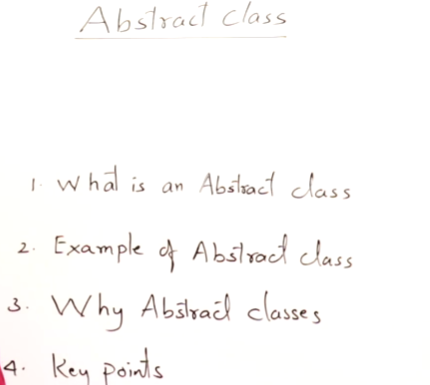 Abstract class
1. What is an Abstract class
2. Example of Abstract class
3. Why Abstract classes
4. Key points